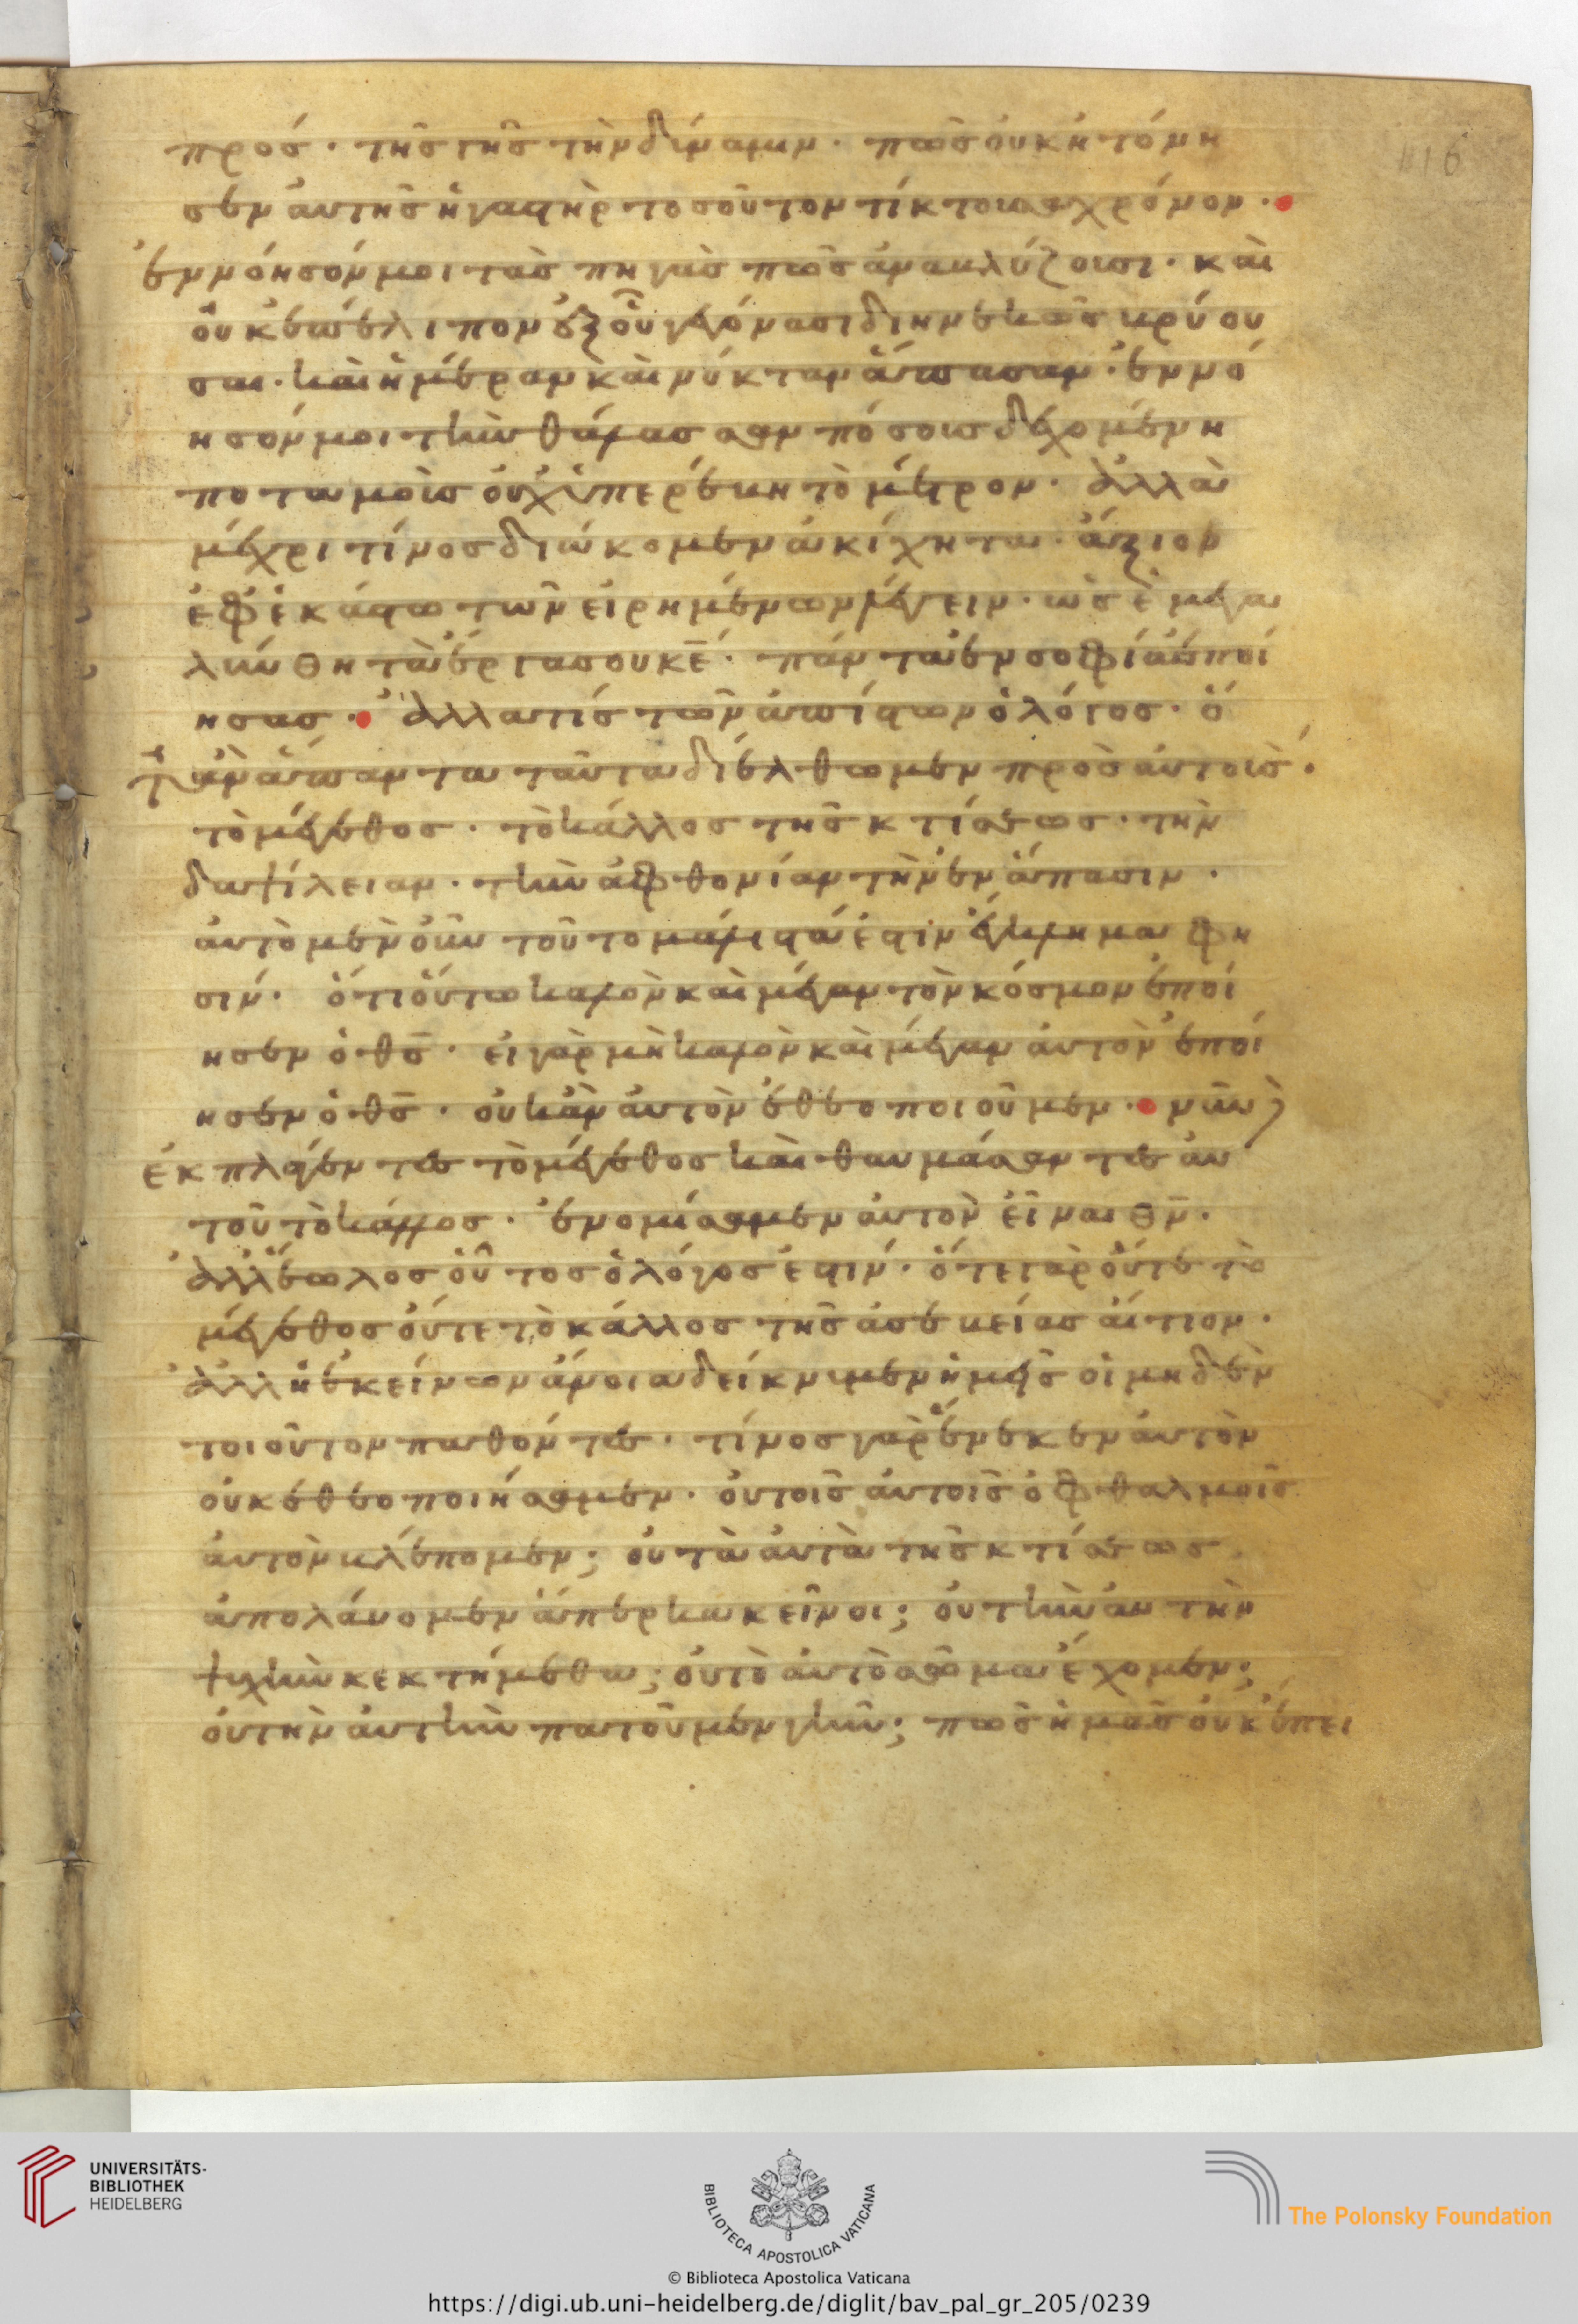 116
πρός· τῆς γῆς τὴν δύναμιν· πῶς οὐκ ἠτόνη
σεν αὐτῆς ἡ γαστὴρ τοσοῦτον τίκτουσα χρόνον·
ἐννόησόν μοι τὰς πηγὰς πῶς ἀναβλύζουσι· καὶ
οὐκ ἐπέλιπον ἐξ οὗ γεγόνασι διηνεκῶς βρύου
σαι· καὶ ἡμέραν καὶ νύκταν ἅπασαν· ἐννό
ησόν μοι τὴν θάλασσαν πόσοις δεχομένη
ποταμοῖς οὐχ ὑπερέβη τὸ μέτρον· ἀλλὰ
μέχρι τίνος διώκομεν ἀκίχητα· ἄξιον
ἐφ' ἑκάστω τῶν εἰρημένων λέγειν· ὡς ἐμεγα
λύνθη τὰ ἔργα σου κε̄· πάντα ἐν σοφία ἐποί
ησας· ἀλλὰ τίς τῶν ἀπίστων ὁ λόγος· ὅ
ταν ἅπαντα ταῦτα διέλθωμεν πρὸς αὐτοὺς·
τὸ μέγεθος· τὸ κάλλος τῆς κτίσεως· τὴν
δαψίλειαν· τὴν ἀφθονίαν τὴν ἐν ἅπασιν·
αὐτὸ μὲν οὖν τοῦτο μάλιστά ἐστιν ἔγκλημα φη
σιν· ὅτι οὕτω καλὸν καὶ μέγαν τὸν κόσμον ἐποί
ησεν ὁ θς̄· εἰ γὰρ μὴ καλὸν καὶ μέγαν αὐτὸν ἐποί
ησεν ὁ θς̄· οὐκ ἂν αὐτὸν ἐθεοποιοῦμεν· νῦν δὲ
ἐκπλαγέντες τὸ μέγεθος καὶ θαυμάσαντες αὐ
τοῦ τὸ κάλλος· ἐνομίσαμεν αὐτὸν εἶναι θν̄·
ἀλλ' ἕωλος οὗτος ὁ λόγος ἐστιν· ὅτε γὰρ οὔτε τὸ
μέγεθος οὔτε τὸ κάλλος τῆς ἀσεβείας αἴτιον·
ἀλλ' ἡ ἐκείνων ἄνοια δείκνυμεν ἡμεῖς οἱ μηδὲν
τοιοῦτον παθόντες· τίνος γὰρ ἕνεκεν αὐτὸν
οὐκ ἐθεοποιήσαμεν· οὐ τοῖς αὐτοῖς ὀφθαλμοῖς
αὐτὸν βλέπομεν; οὐ τὰ αὐτὰ τῆς κτίσεως
ἀπολάυομεν ἅπερ κακεῖνοι; οὐ τὴν αὐτὴν
ψυχὴν κεκτήμεθα; οὐ τὸ αὐτὸ σῶμα ἔχομεν;
οὐ τὴν αὐτὴν πατοῦμεν γῆν; πῶς ἡμᾶς οὐκ ἔπει
UNIVERSITÄTS-
BIBLIOTHEK
HEIDELBERG
BIBLIOTECA APOSTOLICA VATICANA
The Polonsky Foundation
© Biblioteca Apostolica Vaticana
https://digi.ub.uni-heidelberg.de/diglit/bav_pal_gr_205/0239